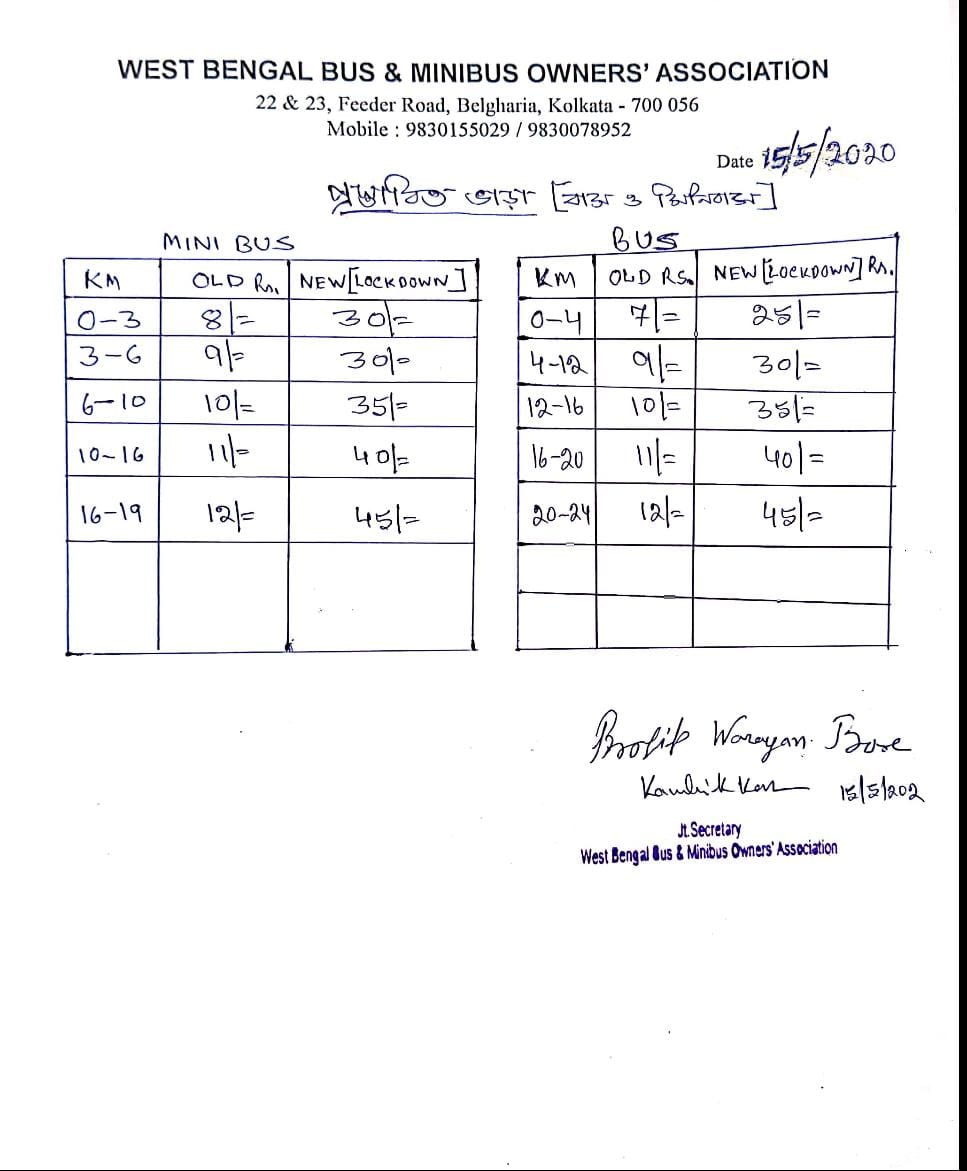 WEST BENGAL BUS & MINIBUS OWNERS' ASSOCIATION
22 & 23, Feeder Road, Belgharia, Kolkata - 700 056
Mobile : 9830155029 / 9830078952
Date 15/5/2020
প্রস্তাবিত ভাড়া [বাস ও মিনিবাস]
MINI BUS
KM OLD Rs. NEW [LOCKDOWN]
0-3 8/= 30/=
3-6 9/= 30/=
6-10 10/= 35/=
10-16 11/= 40/=
16-19 12/= 45/=
BUS
KM OLD RS. NEW [LOCKDOWN] Rs.
0-4 7/= 25/=
4-12 9/= 30/=
12-16 10/= 35/=
16-20 11/= 40/=
20-24 12/= 45/=
Narayan Bose
15/5/202
Jt.Secretary
West Bengal Bus & Minibus Owners' Association